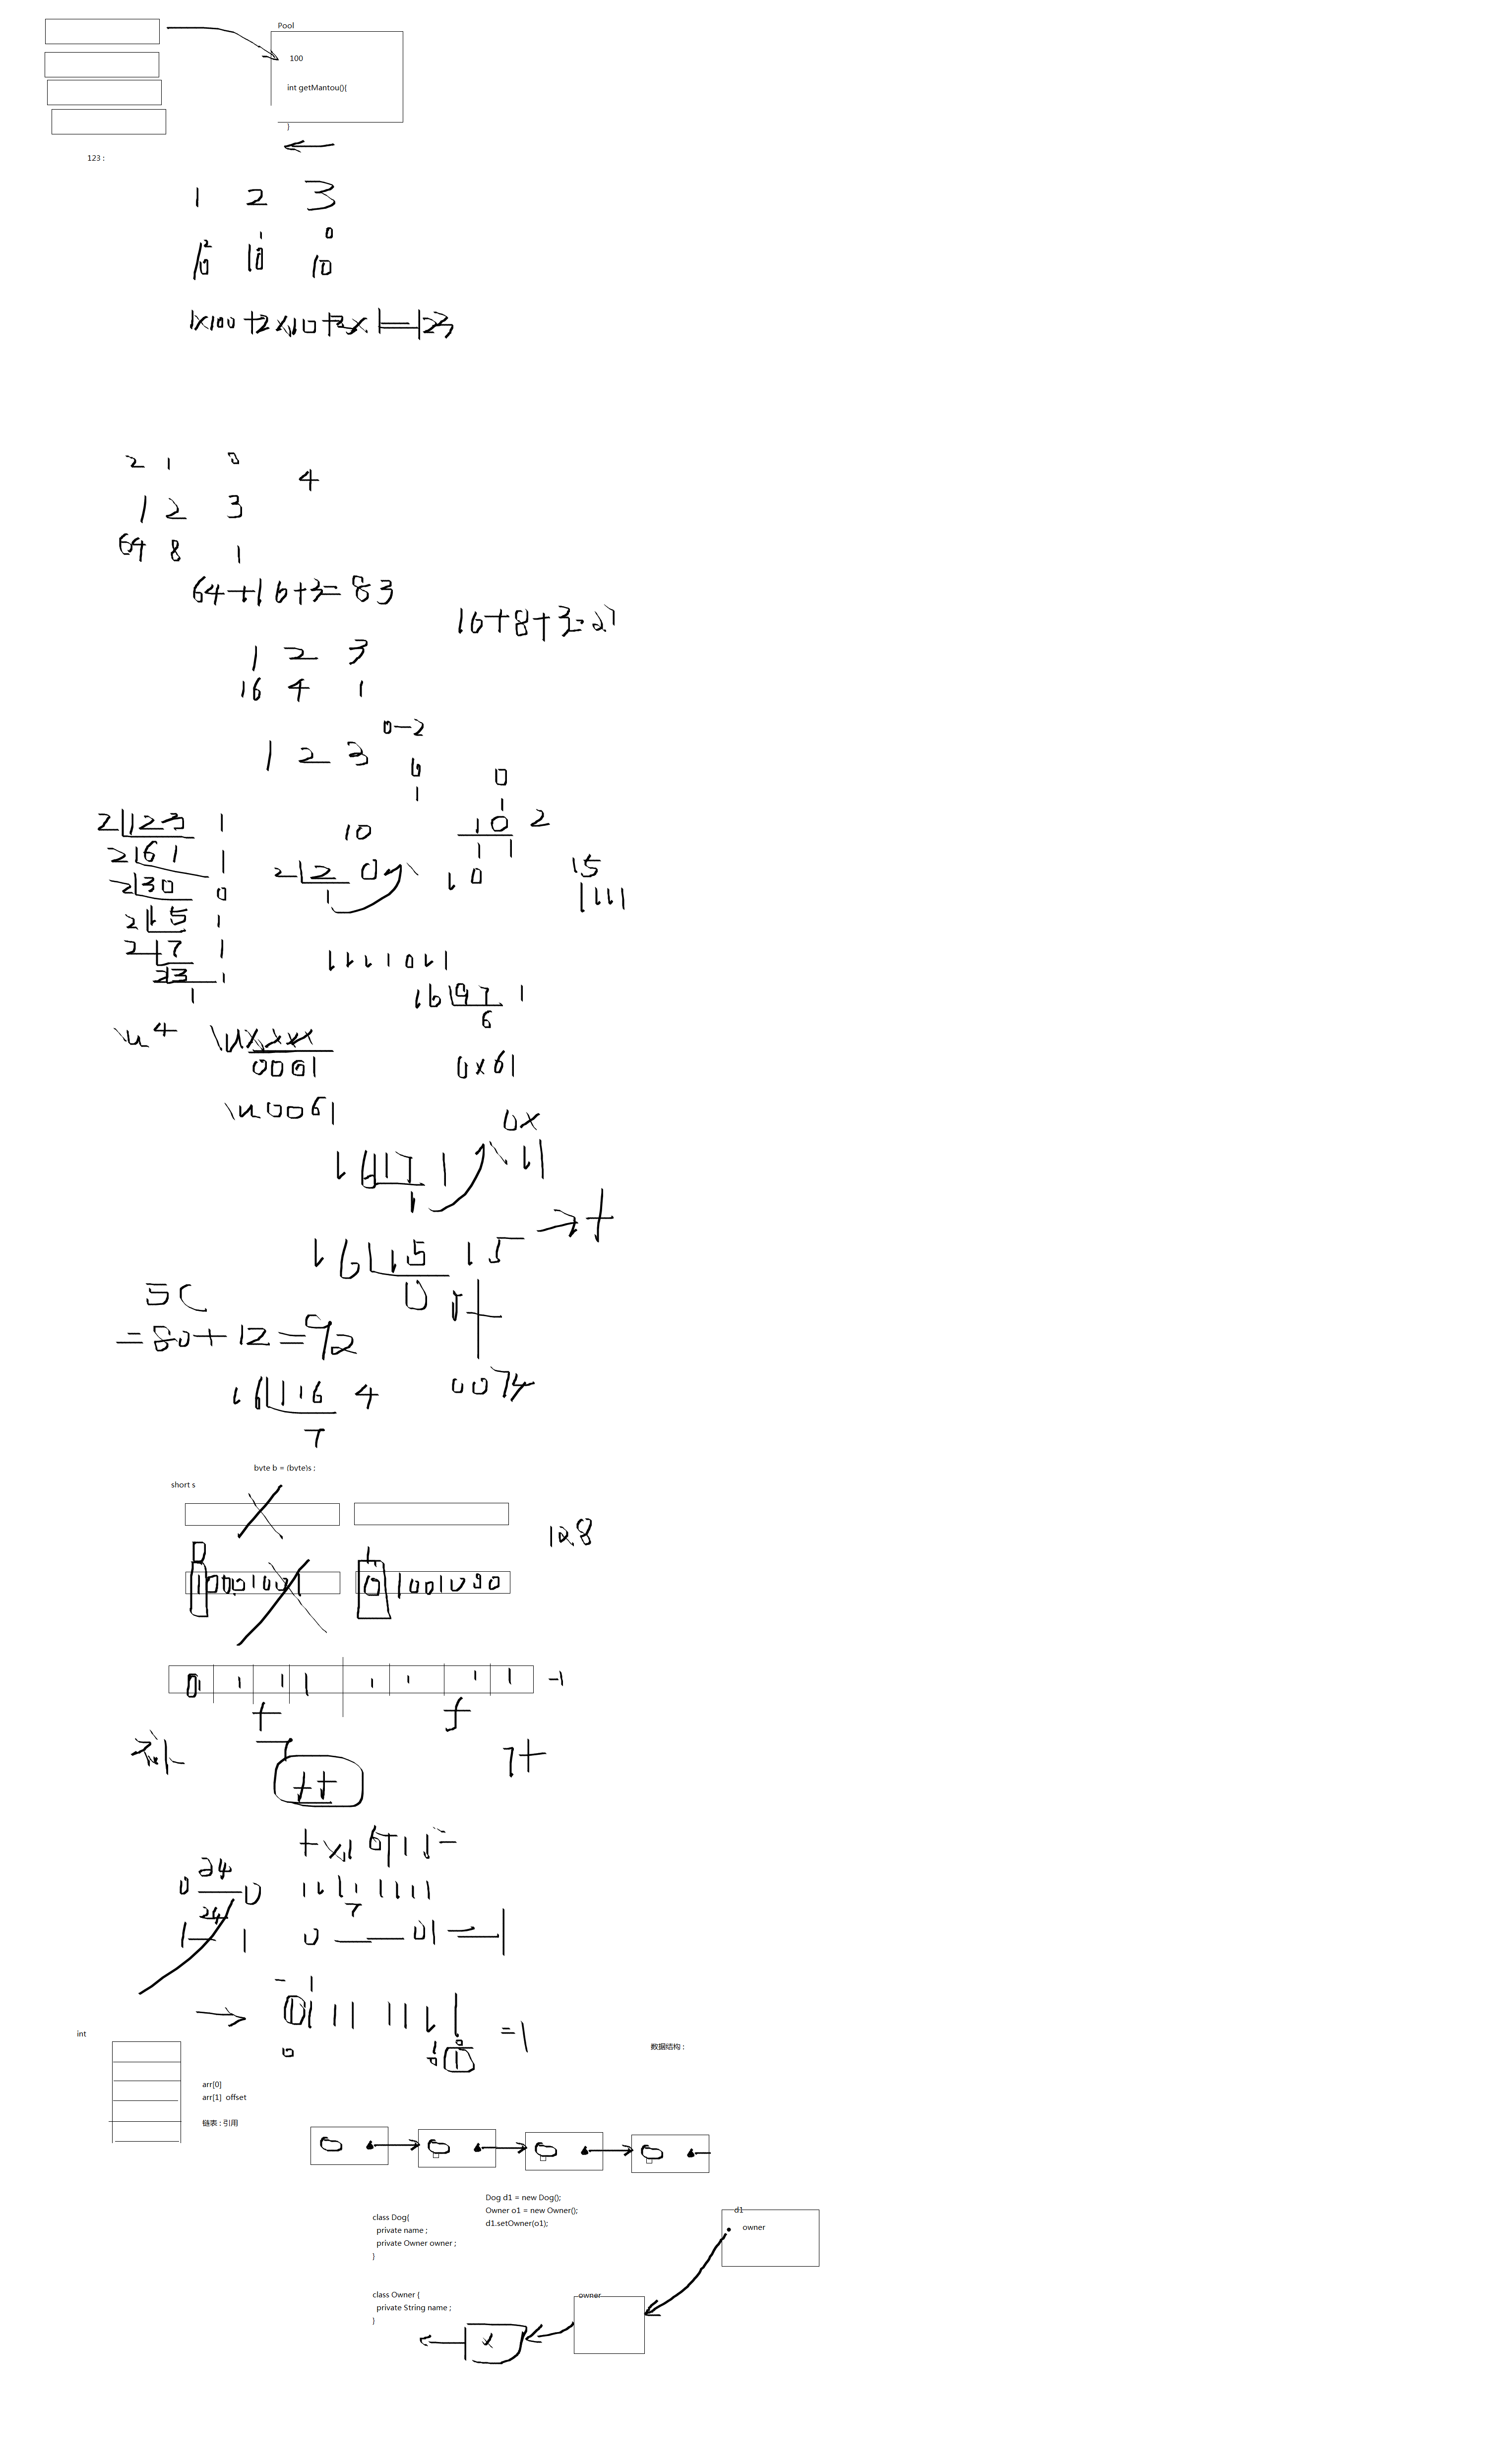 Pool
100
int getMantou(){
}
123 :
1 2 3
2 1 0
10 10 10
1x100+2x10+3x1=123
2 1 0
4
1 2 3
64 8 1
64+16+3=83
16+8+3=27
1 2 3
16 4 1
0-2
1 2 3
0
1
0
1
10 2
11
10
2 123 1
2 61 1
2 30 0
2 15 1
2 7 1
2 3 1
1
10
2 2 0
1
15
1111
1111011
16 97 1
6
\u 4
\uxxxx
0061
0x61
\u0061
0x
16 17 1
1
11
16 15 15 → f
0
0f
5C
=80+12=92
0074
16 116 4
7
byte b = (byte)s ;
short s
128
0
10001001
1
0 1001000
0 1 1 1 1 1 1 1 1 -1
f f
补
7
7f
ff
fx16+15=
0 24 0
1111 1111
7
24
1 1
0 01 = 1
- 1
→ 1 1 11 1111
=1
0
int
数据结构 :
arr[0]
arr[1] offset
链表 : 引用
Dog d1 = new Dog();
Owner o1 = new Owner();
d1.setOwner(o1);
d1
owner
class Dog{
private name ;
private Owner owner ;
}
owner
class Owner {
private String name ;
}
x